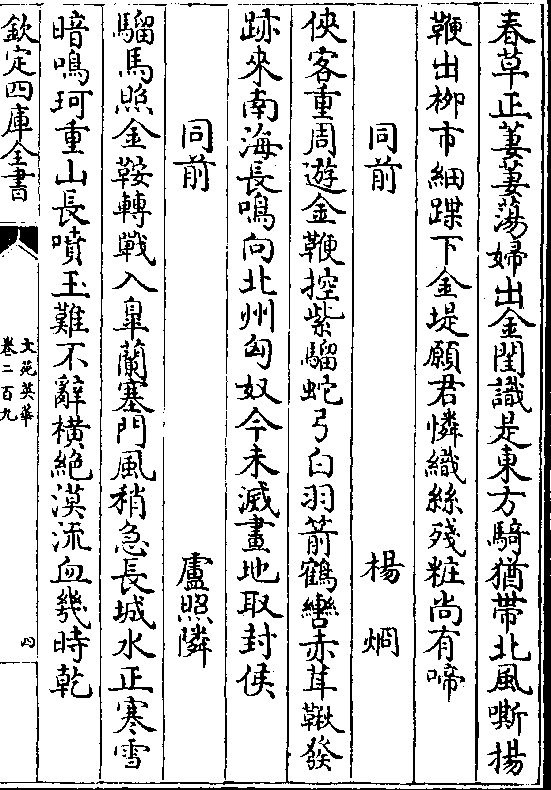 春草正萋萋蕩婦出金閨識是東方騎猶帶北風嘶揚
鞭出柳市細蹀下金堤願君憐織絲殘粧尚有啼
同前 楊烱
俠客重周遊金鞭控紫騮蛇弓白羽箭鶴轡赤茸鞦發
跡來南海長鳴向北州匈奴今未滅畫地取封侯
同前 盧照隣
騮馬照金鞍轉戰入臯蘭塞門風稍急長城水正寒雪
暗鳴珂重山長噴玉難不辭橫絶漠流血幾時乾
欽定四庫全書
文苑英華
卷二百九
四